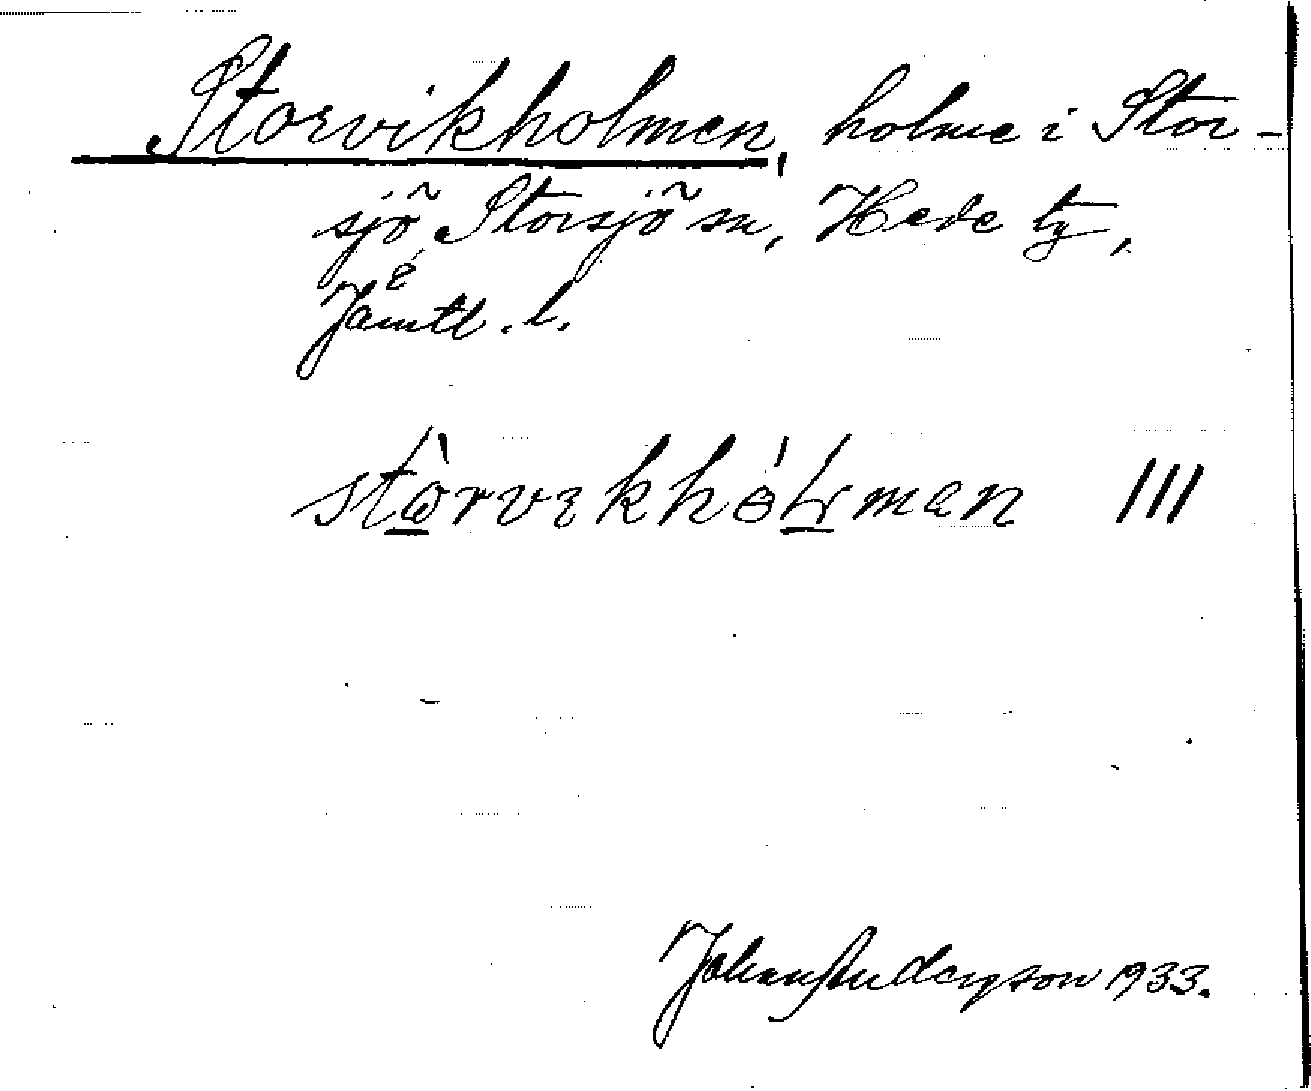 Storvikholmen, holme i Stor-
sjö, Storsjö sn, Hede tg,
Jämtl. l.
stòrvikhólmen III
Johan Anderson 1933.